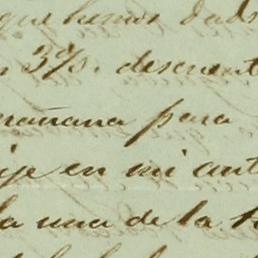 que hemos dado
3%. descuent
mañana para
ije en mi ant
la una de la t